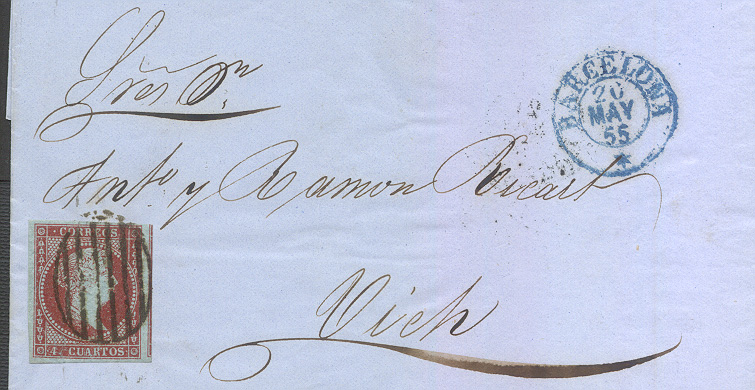 Sres Dn
BARCELONA
20
MAY
55
Anto y Ramon Ricart
CORREOS
4 CUARTOS
Vich